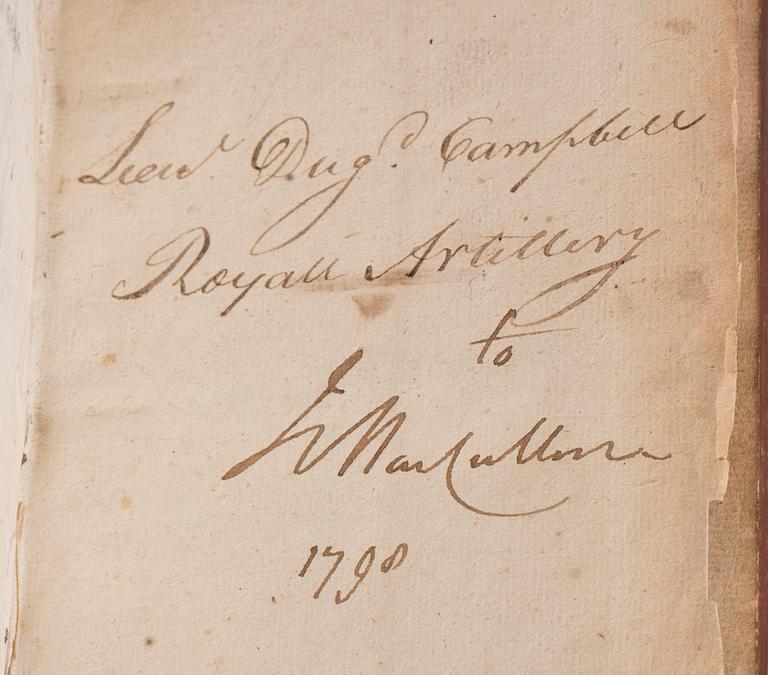 Lieu.t Dug.d Campbell
Royall Artillery
to
J MacCullom
1798